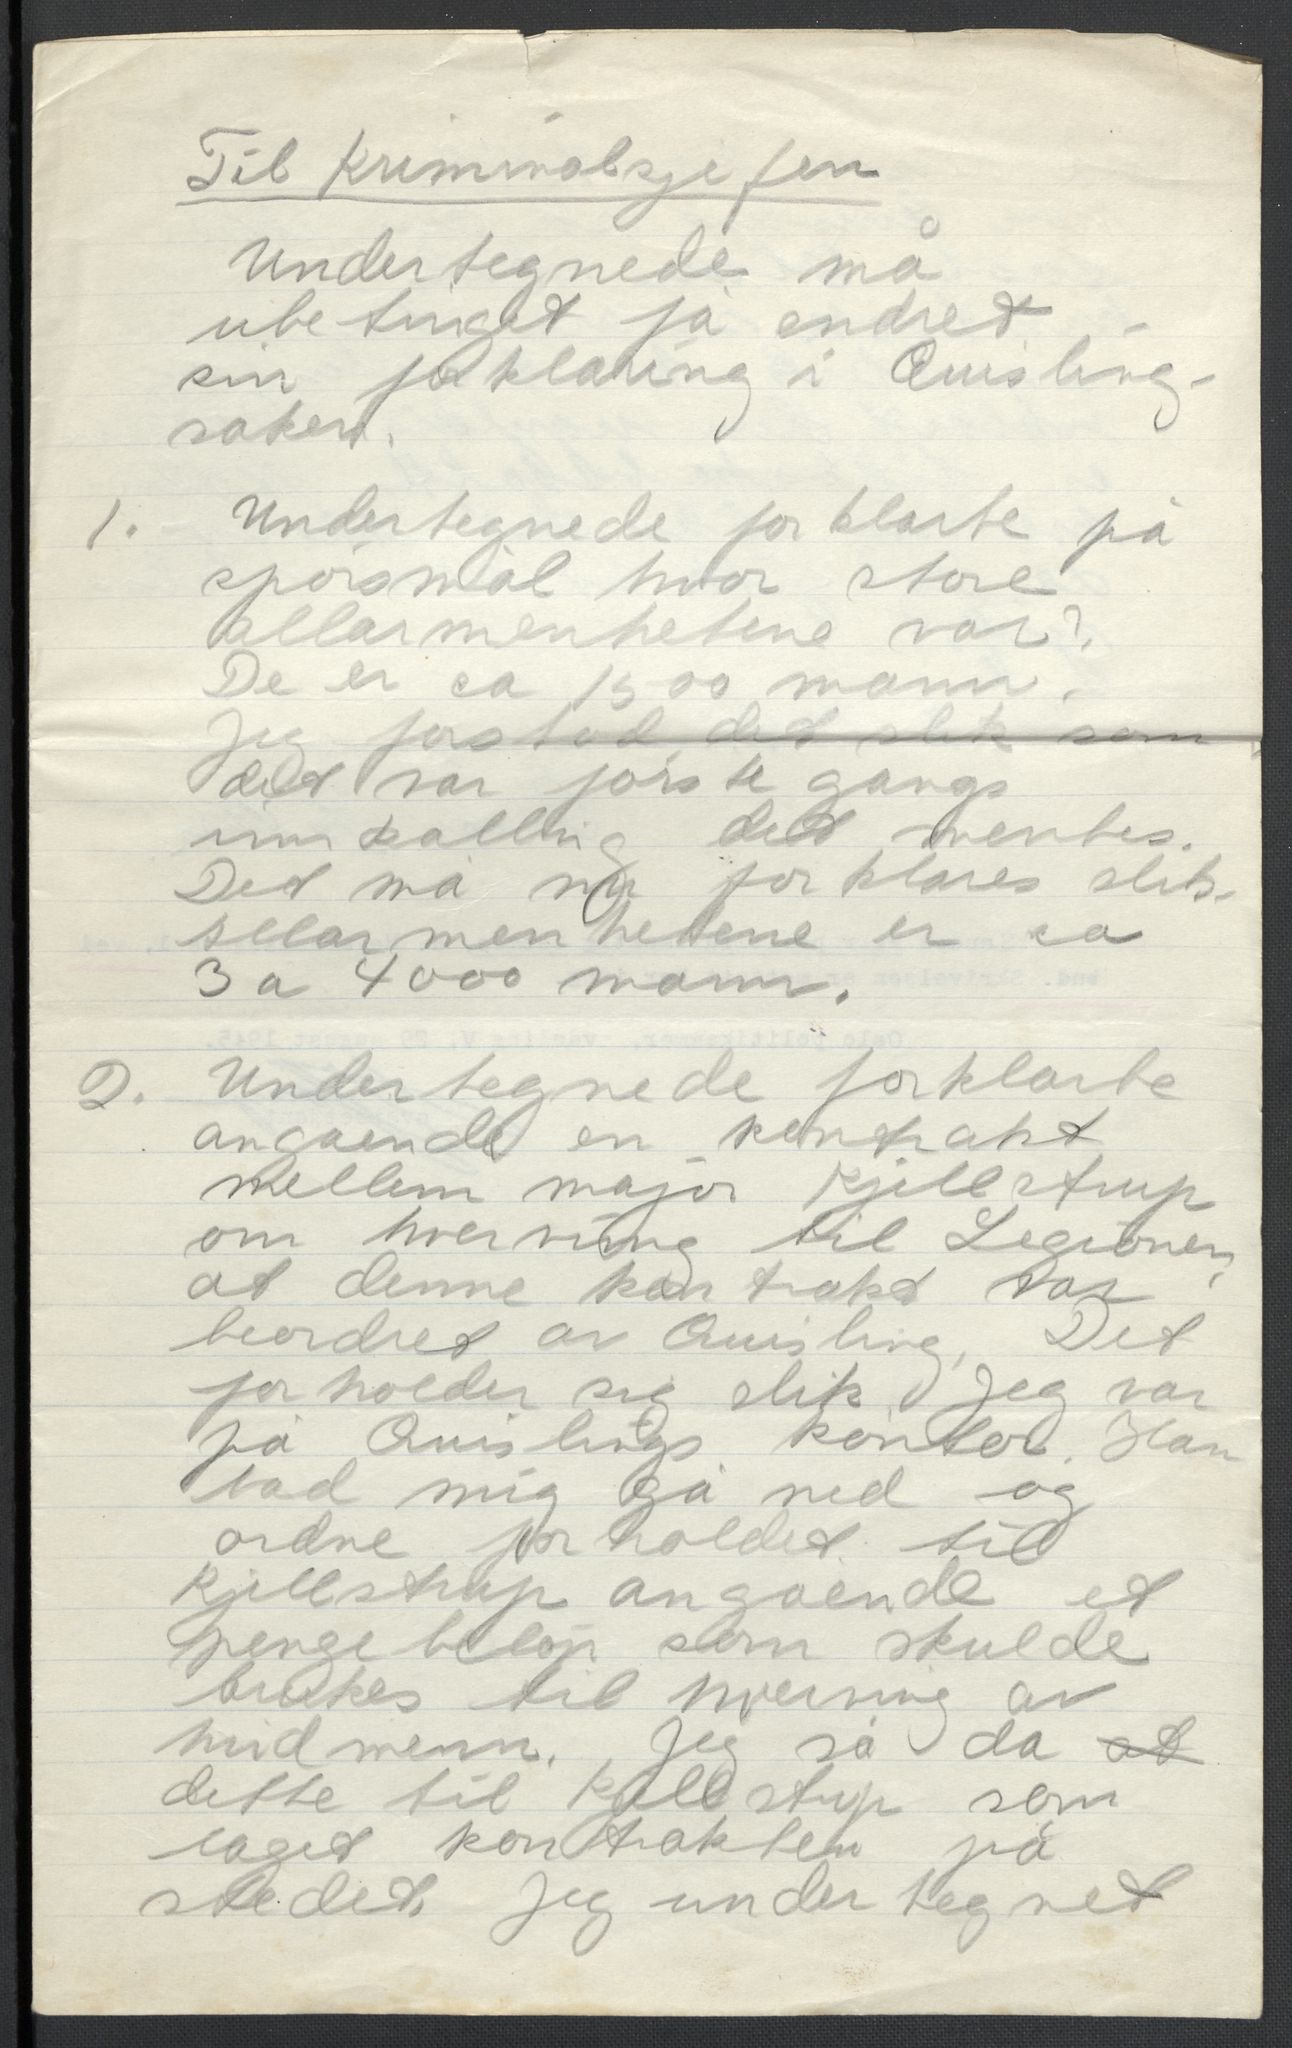 Til Kriminalsjefen
Undertegnede må
ubetinget få endret
sin forklaring i Quisling-
saken.
1. Undertegnede forklarte på
spörsmål hvor store
allarmenhetene var?
De er ca 1500 mann.
Jeg forstod det slik som
det var förste gangs
innkalling det mentes.
Det må nu forklares slik.
allarmenhetene er ca
3 a 4000 mann.
2. Undertegnede forklarte
angaende en kontrakt
mellem major Kjellstrup
om hverving til Legionen,
at denne kontrakt var
beordret av Quisling. Det
forholder sig slik, Jeg var
på Quislings kontor. Han
bad mig gå ned og
ordne forholdet til
Kjellstrup angaende et
pengebelöp som skulde
brukes til hverving av
hirdmenn. Jeg sa da at
dette til Kjellstrup som
laget kontrakten på
stedet. Jeg undertegnet
Oslo politikammer, V, 29 august 1945.